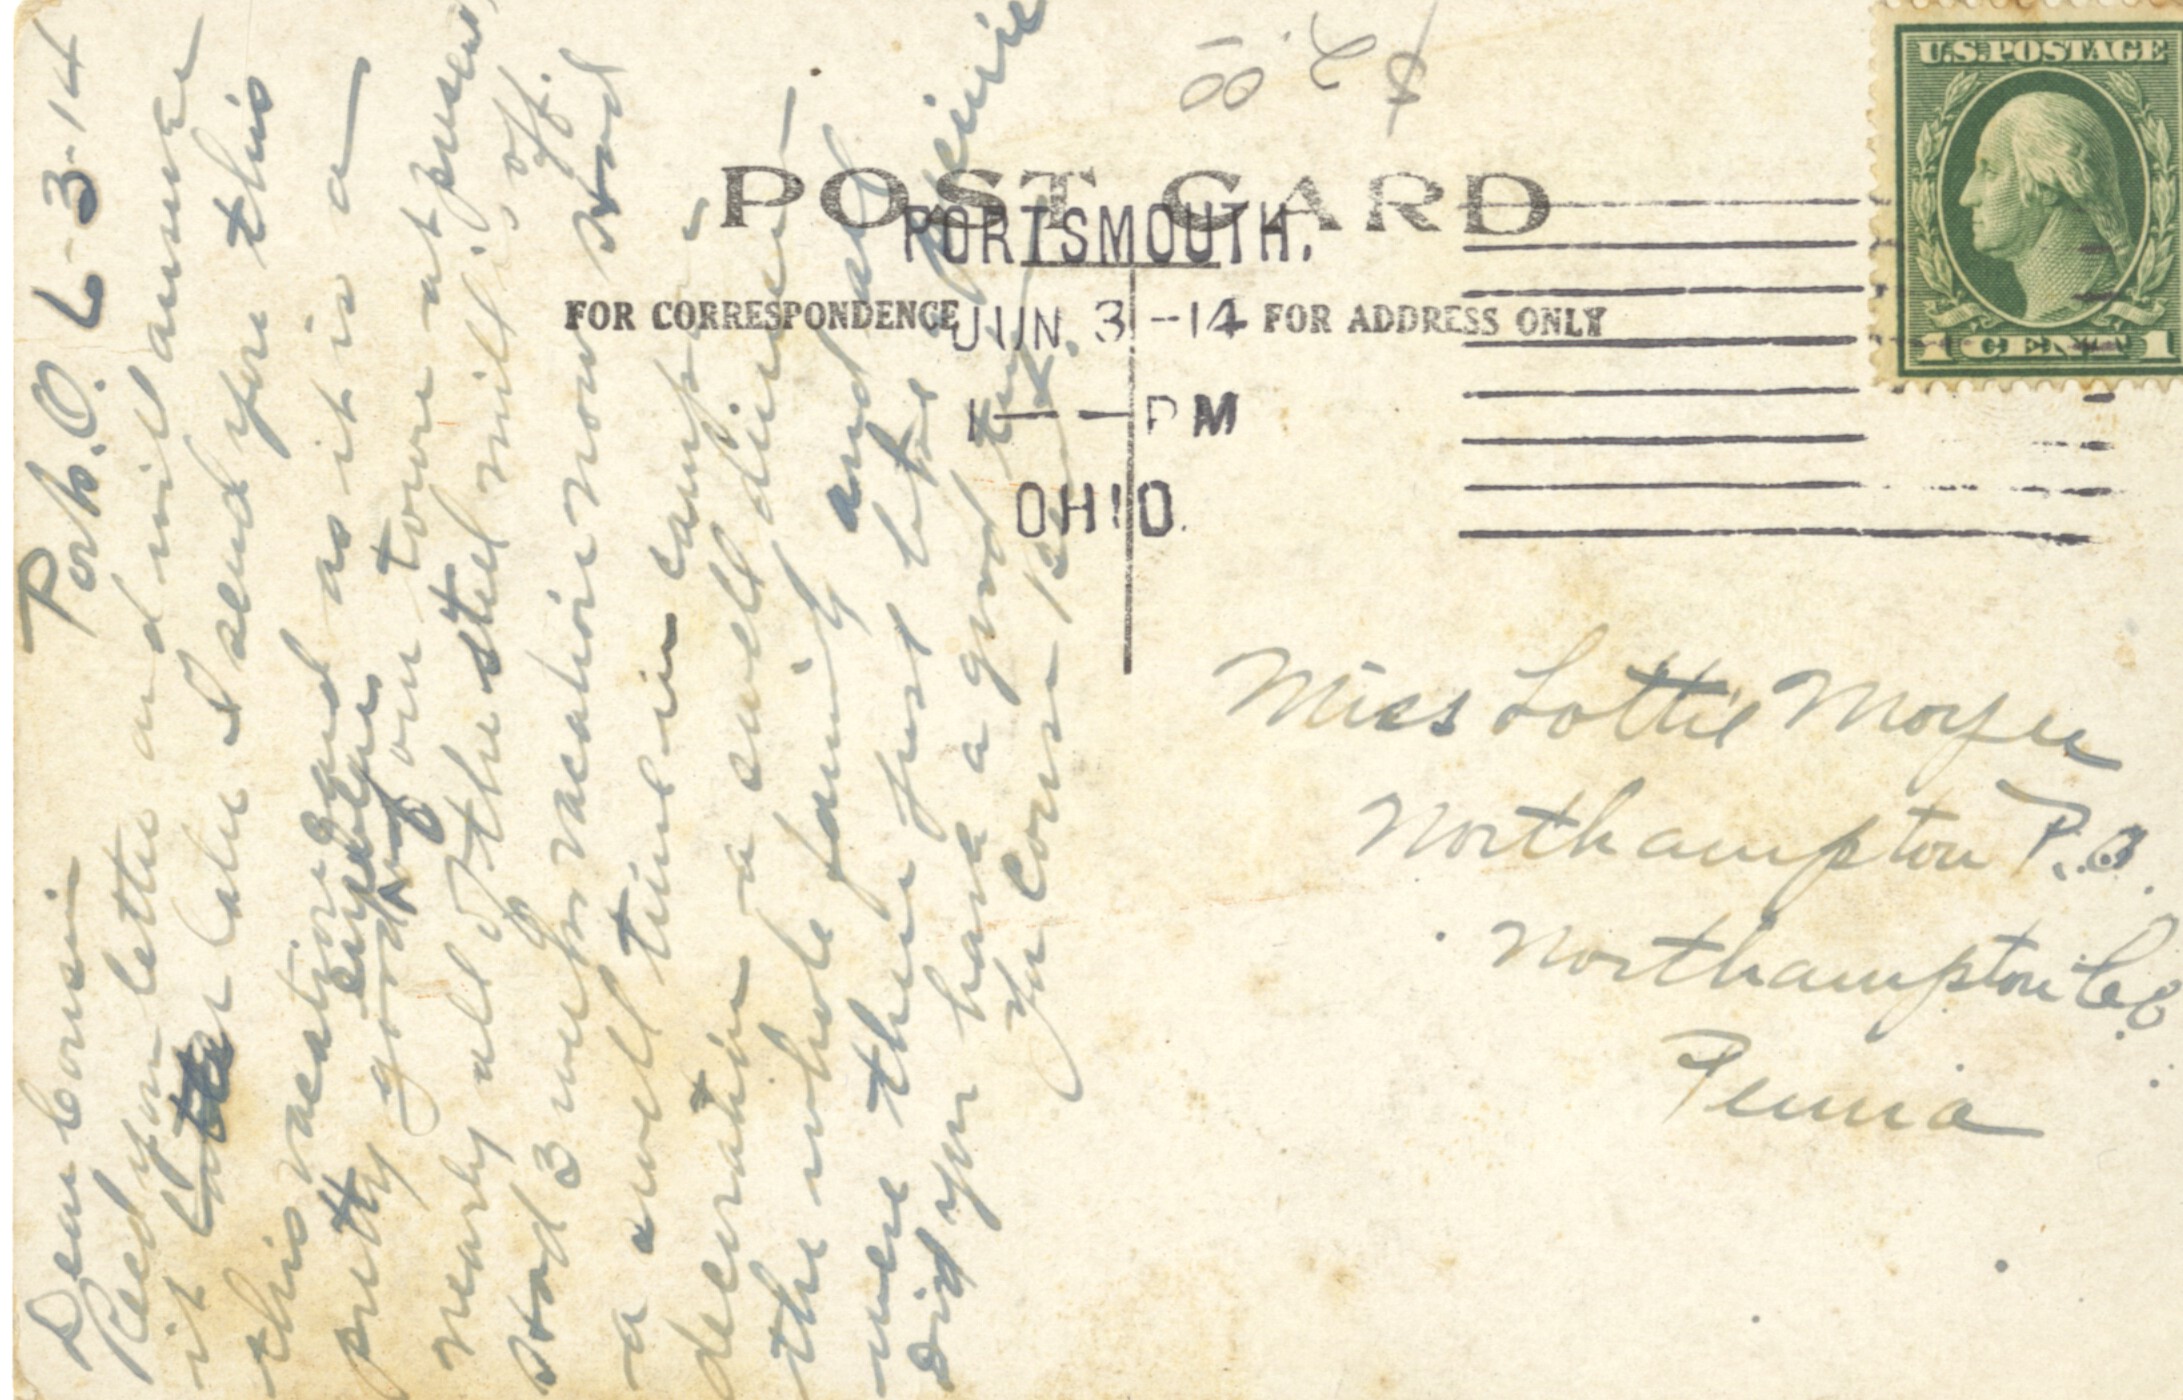 $2.00
U.S. POSTAGE
1 CENT 1
POST CARD
PORTSMOUTH.
JUN 3 -14
1 — PM
OHIO.
FOR CORRESPONDENCE
FOR ADDRESS ONLY
Ports. O. 6-3-14
Dear Cousin
Recd your letter and will answer
it later I send you this
this vacation card as it is a
pretty good view of our town at present
nearly all of the steel mills off.
Had 3 weeks vacation now Had
a swell time in camp -
decoration - a swell dinner -
the whole family and all
were there just like picnic
Did you have a good time
Yr Cousin
Miss Lottie Moyer
Northampton P.O.
Northampton Co.
Penna